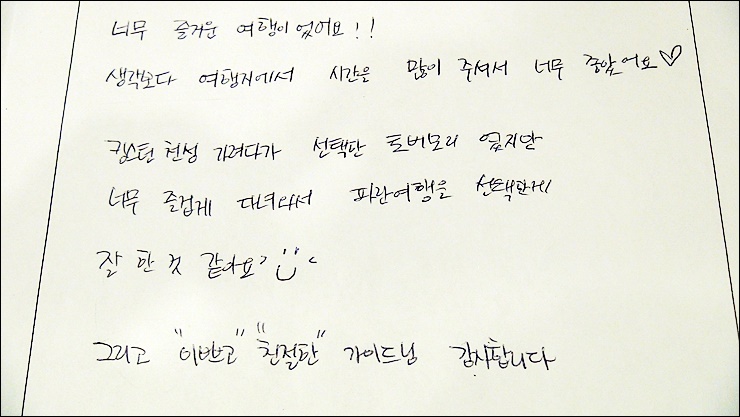 너무 즐거운 여행이었어요!!
생각보다 여행지에서 시간을 많이 주셔서 너무 좋았어요♡
킹스턴 헌성 가려다가 선택한 토버모리 였지만
너무 즐겁게 다녀와서 파란여행을 선택한게
잘 한 것 같아요~
그리고 "이쁘고" "친절한" 가이드님 감사합니다